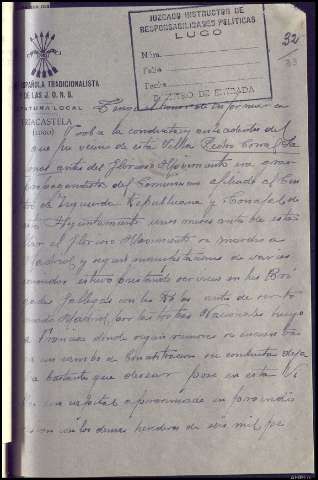 JUZGADO INSTRUCTOR DE
RESPONSABILIDADES POLITICAS
LUGO
Núm.
Folio
Fecha
LIBRO DE ENTRADA
32
33
ESPAÑOLA TRADICIONALISTA
DE LAS J. O. N. S.
JEFATURA LOCAL
TRIACASTELA
(LUGO)
Tengo el honor de informar a
sobre la conducta y actividades del
que fu vecino de esta Villa Pedro
antes del Glorioso Movimiento era gran
propagandista del Comunismo afiliado al Cen
tro de Izquierda Republicana y Concejal de
Ayuntamiento unos meses antes de esta
llar el Glorioso Movimiento se marcho a
Madrid y segun manifestaciones de varios
estuvo prestando servicios en las Bri
gadas Gallegas con los Rojos antes de ser to
mado Madrid por las tropas Nacionales huyo
a Francia donde segun rumores se encuentra
en un campo de Concentracion su conducta deja
bastante que desear pose en esta Vi
un capital aproximado en proindiviso
con los demas herederos de seis mil pe